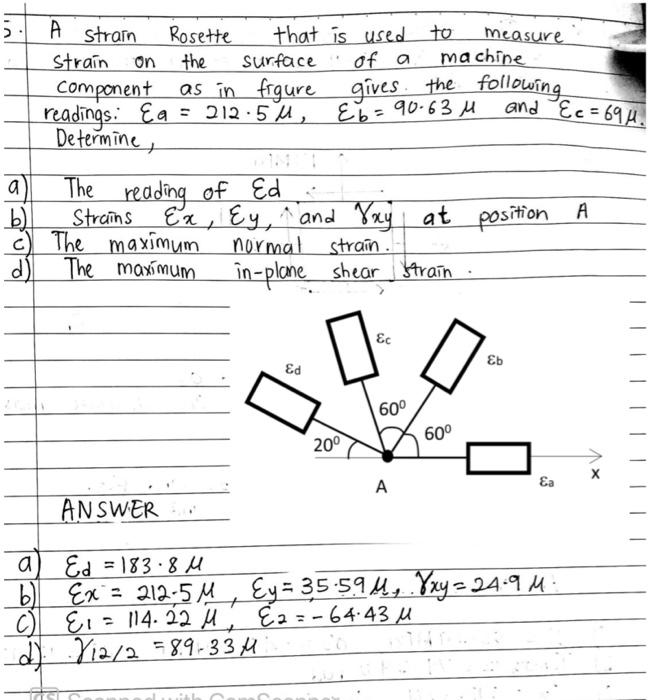 5. A strain Rosette that is used to measure
strain on the surface of a machine
component as in figure gives the following
readings: Ɛa = 212.5 μ, Ɛb = 90.63 μ and Ɛc = 69 μ.
Determine,
a) The reading of Ɛd
b) Strains Ɛx, Ɛy, and γxy at position A
c) The maximum normal strain.
d) The maximum in-plane shear strain.
Ɛc
Ɛb
Ɛd
60⁰
60⁰
20⁰
A
Ɛa
x
ANSWER
a) Ɛd = 183.8 μ
b) Ɛx = 212.5 μ, Ɛy = 35.59 μ, γxy = 24.9 μ
c) Ɛ1 = 114.22 μ, Ɛ2 = -64.43 μ
d) γ12/2 = 89.33 μ